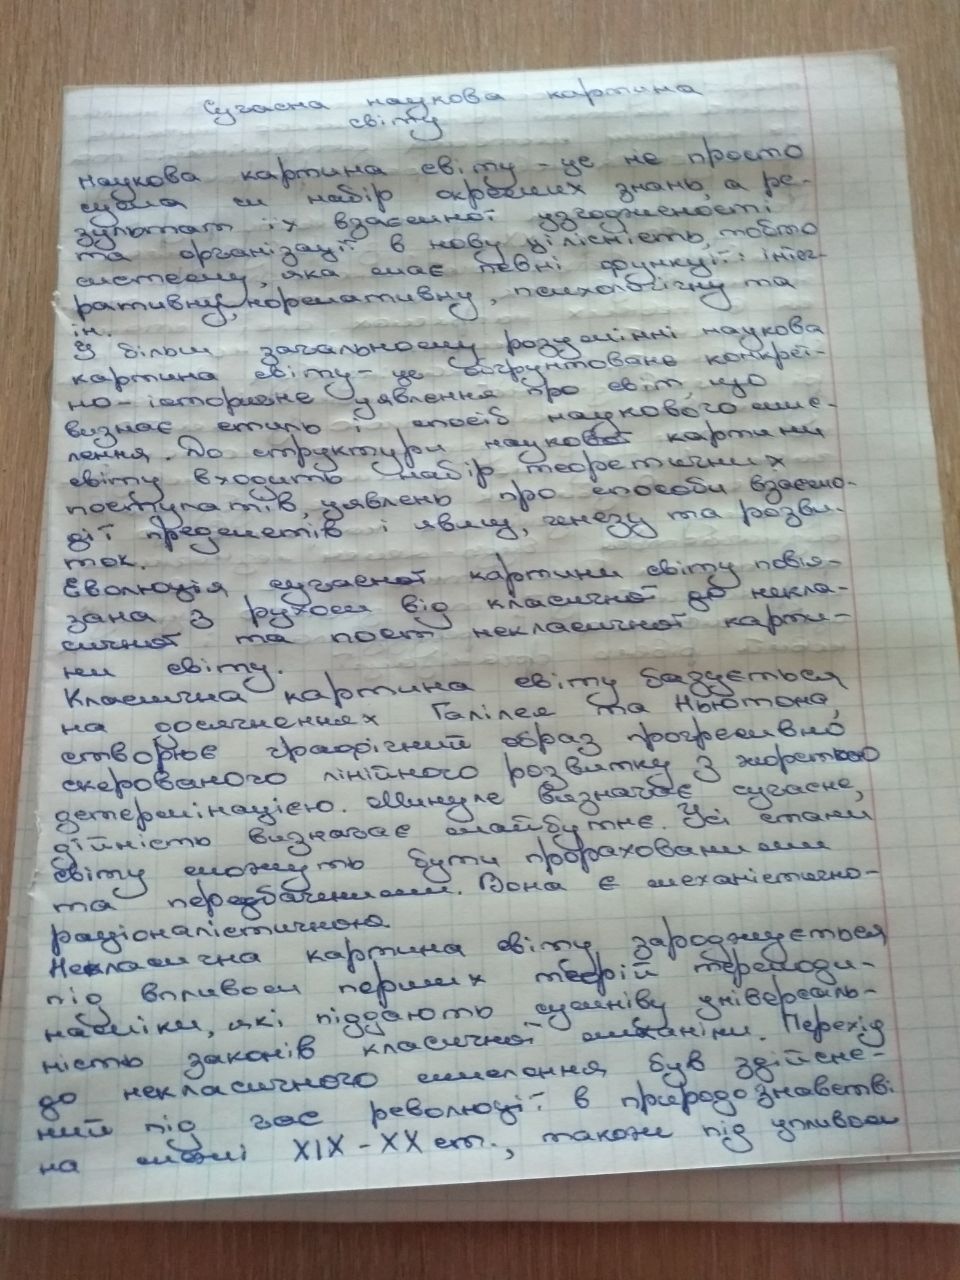 Сучасна наукова картина
світу
Наукова картина світу - це не просто
сума чи набір окремих знань, а ре-
зультат їх взаємної узгодженості
та організації в нову цілісність, тобто
систему, яка має певні функції: інтег-
ративну, нормативну, психологічну та
ін.
У більш загальному розумінні наукова
картина світу - це обгрунтоване конкрет-
но-історичне уявлення про світ, що
визнає стиль і спосіб наукового мис-
лення. До структури наукової картини
світу входить набір теоретичних
постулатів, уявлень про способи взаємо-
дії предметів і явищ, генезу та розви-
ток.
Еволюція сучасної картини світу повія-
зана з рухом від класичної до некла-
сичної та пост некласичної карти-
ни світу.
Класична картина світу базується
на досягненнях Галілея та Ньютона,
створює графічний образ прогресивно
скерованого лінійного розвитку з жорсткою
детермінацією. Минуле визначає сучасне,
дійність визначає майбутнє. Усі стани
світу можуть бути прораховани ми
та передбаченими. Вона є механістично-
раціоналістичною.
Некласична картина світу зароджується
під впливом перших теорій термоди-
наміки, які піддають сумніву універсаль-
ність законів класичної механіки. Перехід
до некласичного мислення був здійсне-
ний під час революції в природознавстві
на межі XIX - XX ст., також під упливом